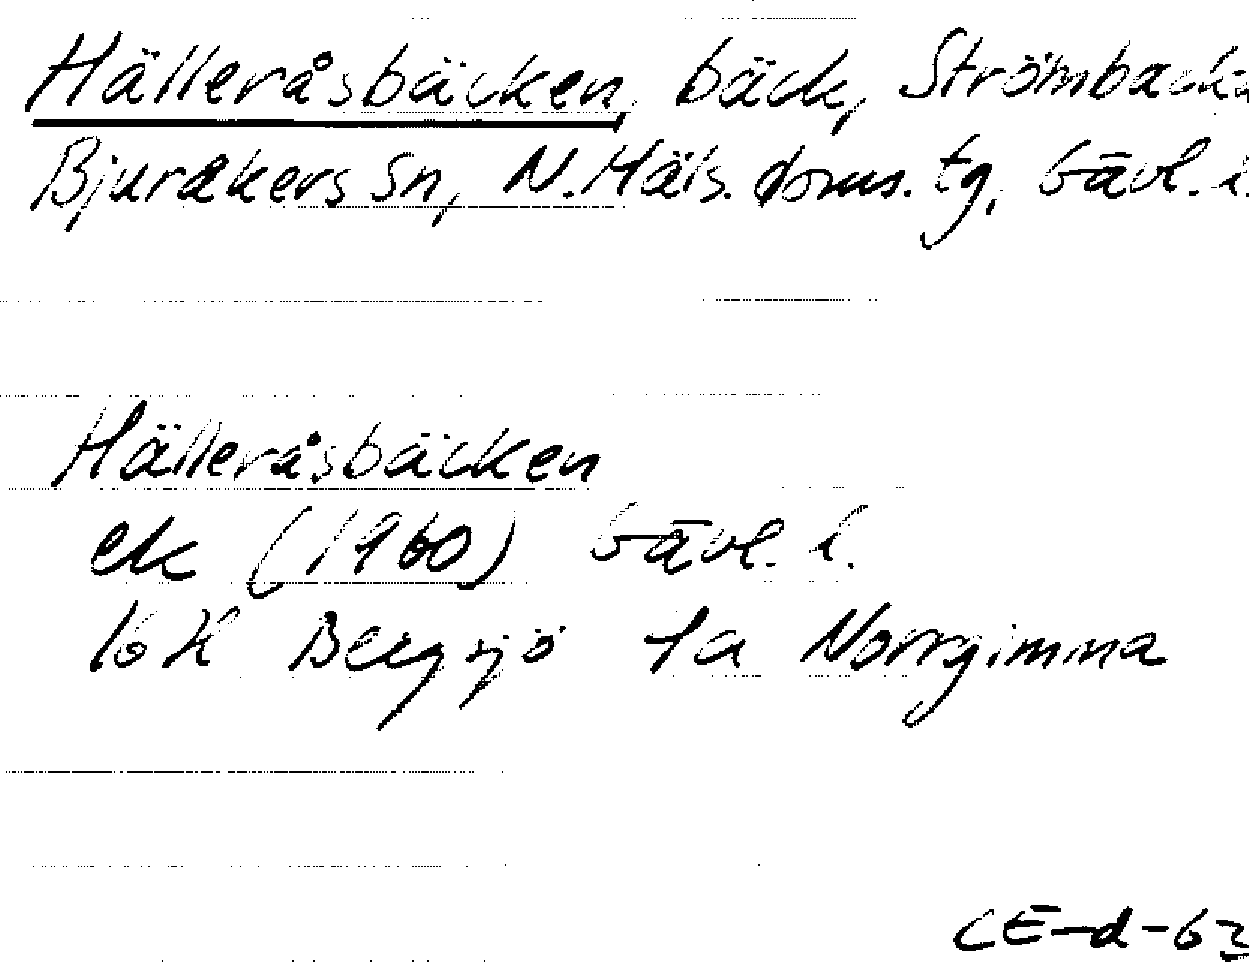 Hälleråsbäcken, bäck, Strömbacka
Bjuråkers sn, N. Häls. doms. tg, Gävl. l.
Hälleråsbäcken
ek (1960) Gävl. l.
16H Bergsjö 1a Norrgimma
CE-d-63